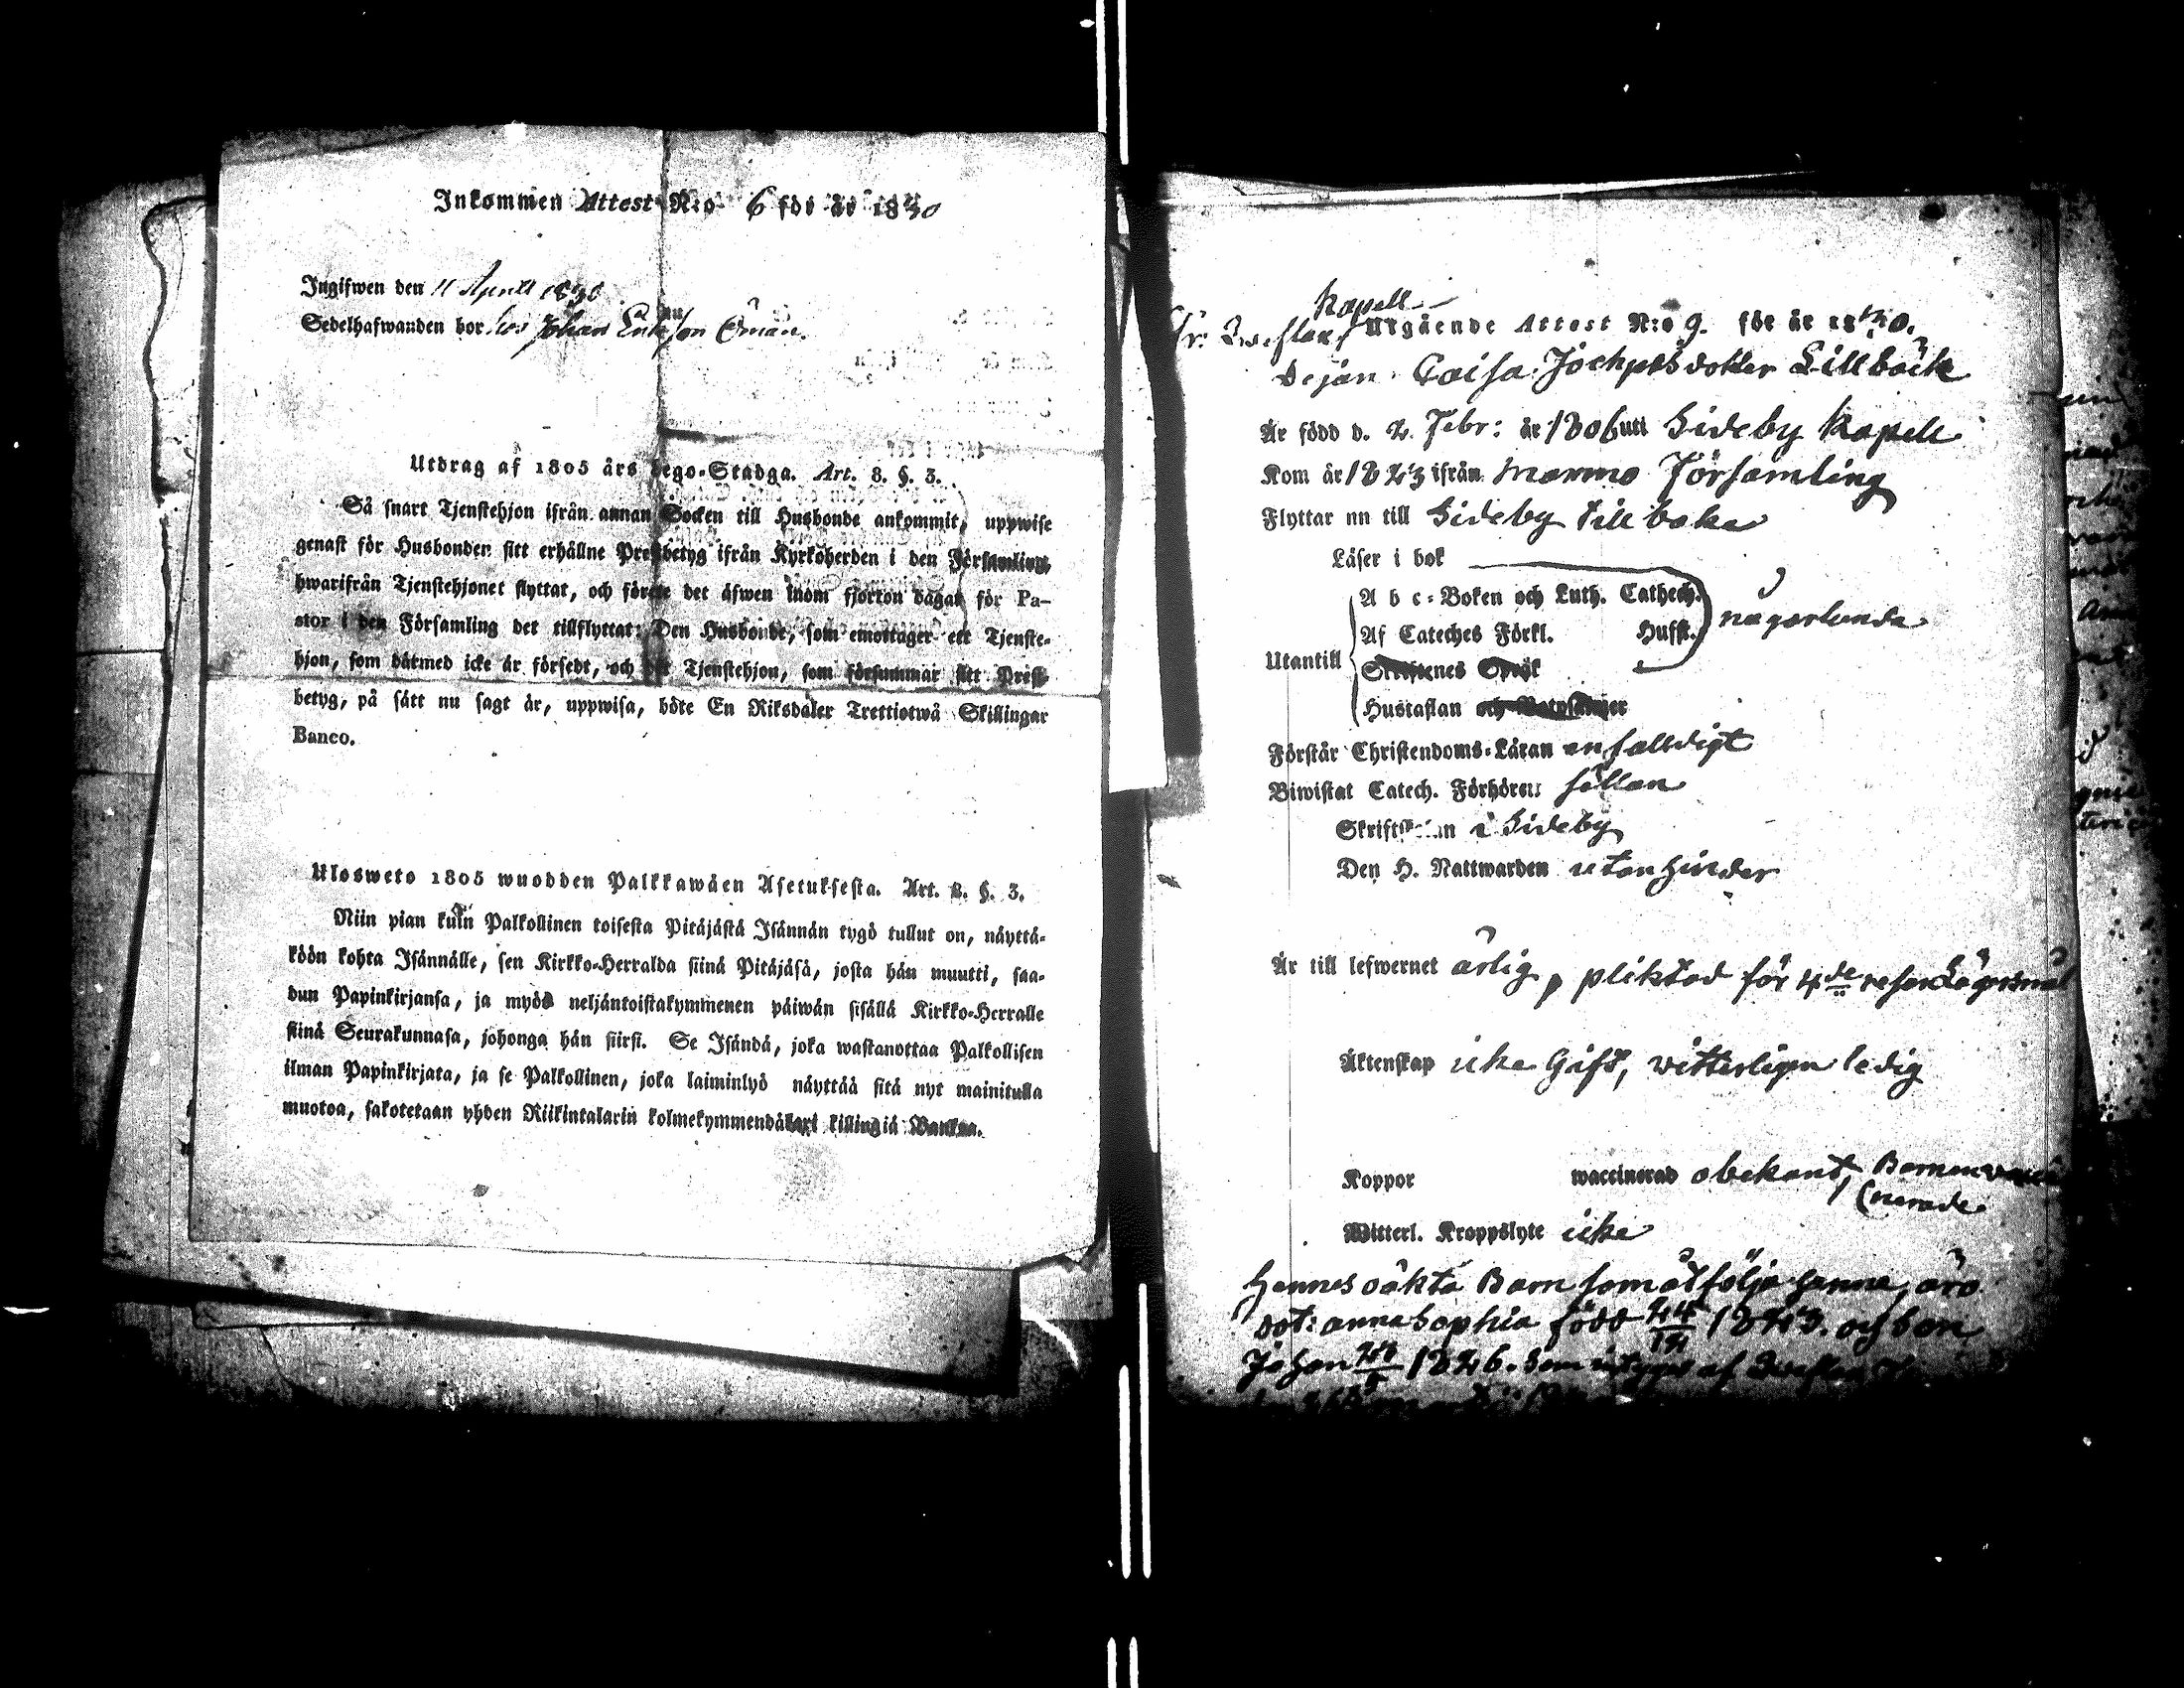 Inkommen Attest N:o 6 för år 1830
Ingifwen den 11 April 1830
Sedelhafwanden bor hos Johan Öman.
Utdrag af 1805 års Lego-Stadga. Art. 8. §. 3.
Så snart Tjenstehjon ifrån annan Socken till Husbonde ankommit, uppwise
genast för Husbonden sitt erhållne Prestbetyg ifrån Kyrkoherden i den Församling,
hwarifrån Tjenstehjonet flyttat, och förete det äfwen inom fjorton dagar för Pa-
stor i den Församling det tillflyttat: Den Husbonde, som emottager ett Tjenste-
hjon, som dåtmed icke är försedt, och det Tjenstehjon, som försummar sitt Prest-
betyg, på sätt nu sagt är, uppwisa, böte En Riksdaler Trettiotwå Skillingar
Banco.
Ulosweto 1805 wuodden Palkkawäen Asetuksesta. Art. 8. §. 3.
Niin pian kuin Palkollinen toisesta Pitäjästä Isännän tygö tullut on, näyttä-
köön kohta Isännälle, sen Kirkko-Herralda siinä Pitäjäsä, josta hän muutti, saa-
dun Papinkirjansa, ja myös neljäntoistakymmenen päiwän sisällä Kirkko-Herralle
siinä Seurakunnasa, johonga hän siirsi. Se Isändä, joka wastanottaa Palkollisen
ilman Papinkirjata, ja se Palkollinen, joka laiminlyö näyttää sitä nyt mainitulla
muotoa, sakotetaan yhden Riikintalarin kolmekymmendäkaxi killingiä Bankaa.
Kapell
Utgående Attest N:o 9. för år 1830.
Dejan Caisa Lillbäck
Är född d. 2 Febr: år 1806 uti Sideby Kapell
Kom år 1823 ifrån Församling
Flyttar nu till Sideby tillbaka
Läser i bok
A b c-Boken och Luth. Cathech.
någorlunda
Af Cateches Förkl. Husst.
Utantill
Skriftenes Språk
Hustaflan och
Förstår Christendoms-Läran enfalldigt
Biwistat Catech. Förhören sällan
Skriftskolan i Sideby
Den H. Nattwarden utan hinder
Är till lefwernet ärlig, pliktad för 4de resan Lägersmål
Äktenskap icke Gift, witterligen ledig
Koppor waccinerad obekant, Barnen vacci
nerade
Witterl. Kroppslyte icke
Hennes oäkta Barn som åtfölja henne, äro
dot: Anna Sophia född 1823. och Son
Johan 1826. Som